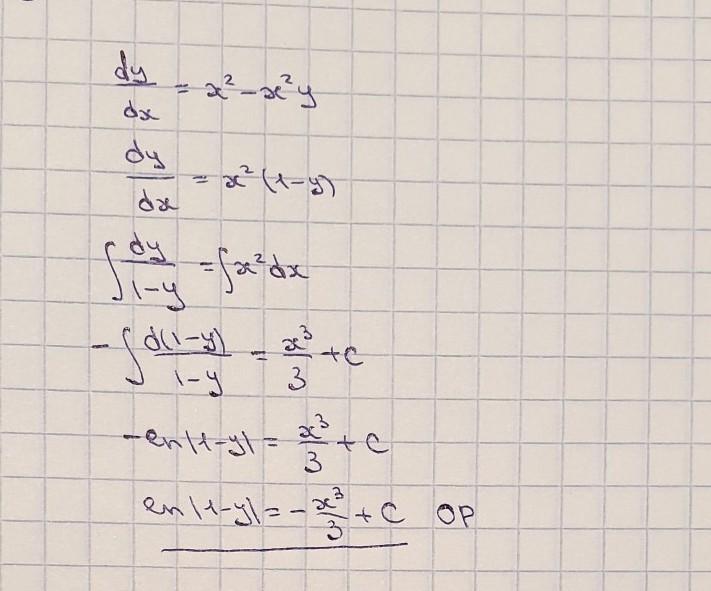 dy/dx = x² - x²y
dy/dx = x²(1-y)
∫ dy/(1-y) = ∫x²dx
-∫ d(1-y)/(1-y) = x³/3 + C
-ln|1-y| = x³/3 + C
ln|1-y| = -x³/3 + C OP